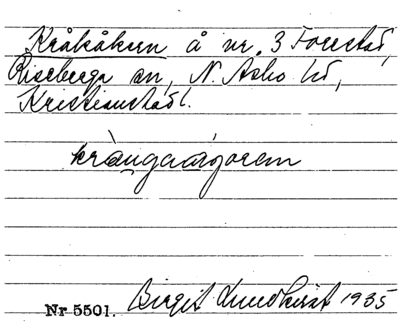 Kråkåkern å nr 3 Forestad,
Riseberga sn, N. Åsbo hd,
Kristianstad l.
Nr 5501. Birgit Lundkvist 1935